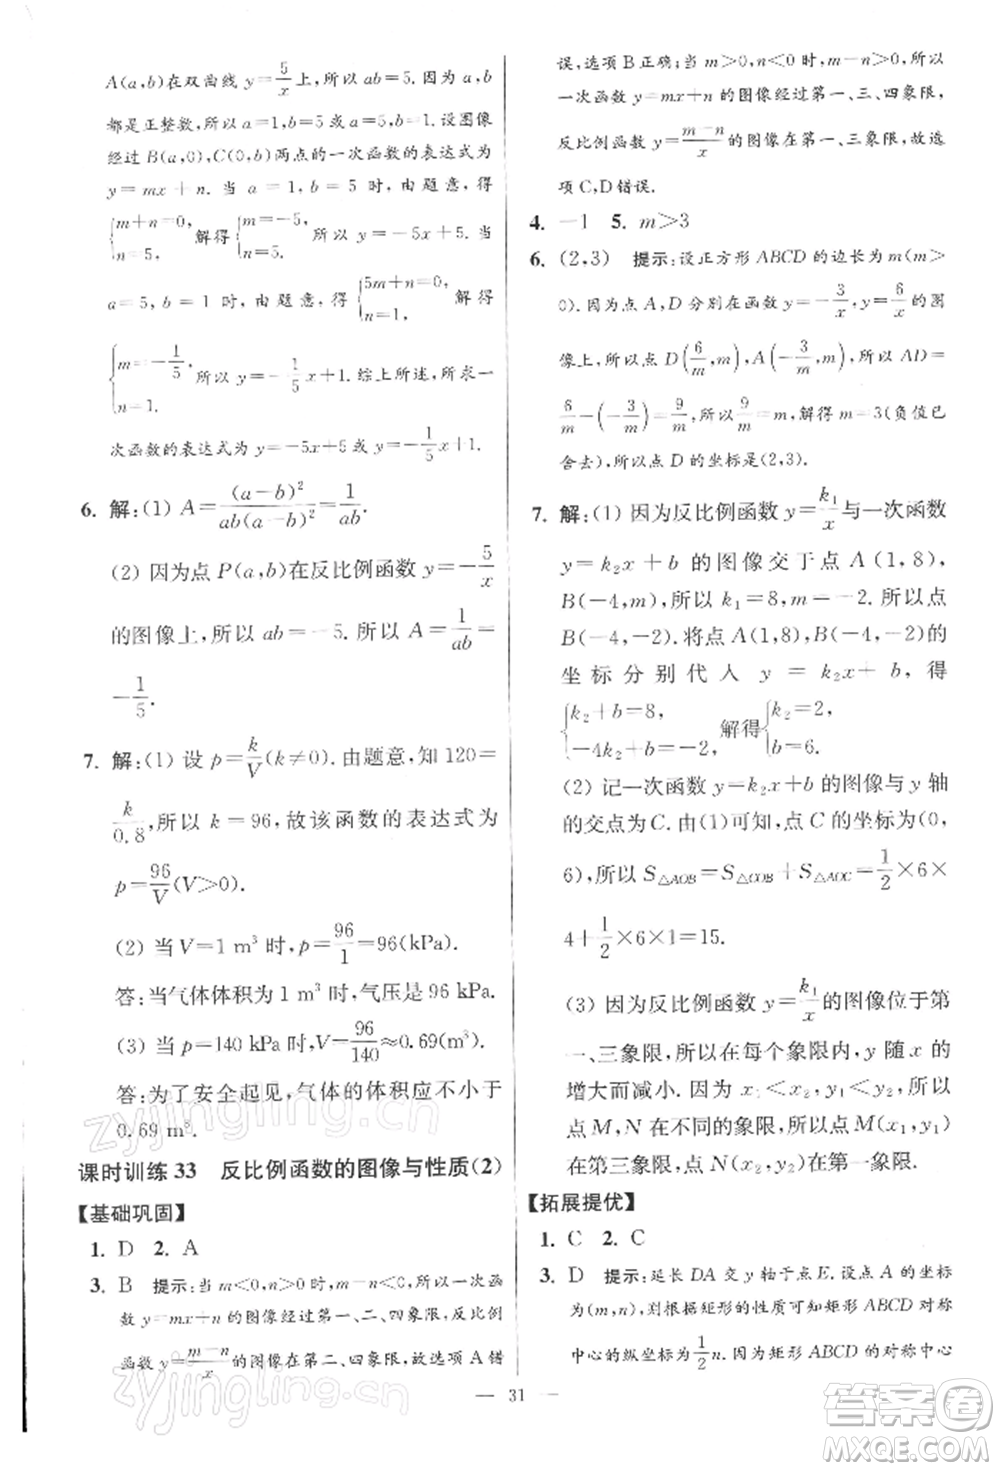 A(a,b)在双曲线 y=5/x 上,所以 ab=5. 因为 a,b
都是正整数,所以 a=1,b=5 或 a=5,b=1. 设图像
经过 B(a,0),C(0,b)两点的一次函数的表达式为
y=mx+n. 当 a=1,b=5 时,由题意,得
{m+n=0, n=5, 解得 {m=-5, n=5, 所以 y=-5x+5. 当
a=5,b=1 时,由题意,得 {5m+n=0, n=1, 解得
{m=-1/5, n=1. 所以 y=-1/5x+1. 综上所述,所求一
次函数的表达式为 y=-5x+5 或 y=-1/5x+1.
6. 解:(1) A=(a-b)²/ab(a-b)²=1/ab.
(2) 因为点 P(a,b)在反比例函数 y=-5/x
的图像上,所以 ab=-5. 所以 A=1/ab=
-1/5.
7. 解:(1) 设 p=k/V(k≠0). 由题意,知 120=
k/0.8,所以 k=96,故该函数的表达式为
p=96/V(V>0).
(2) 当 V=1 m³ 时,p=96/1=96(kPa).
答:当气体体积为 1 m³ 时,气压是 96 kPa.
(3) 当 p=140 kPa 时,V=96/140≈0.69(m³).
答:为了安全起见,气体的体积应不小于
0.69 m³.
课时训练 33 反比例函数的图像与性质(2)
【基础巩固】
1. D 2. A
3. B 提示:当 m<0,n>0 时,m-n<0,所以一次函
数 y=mx+n 的图像经过第一、二、四象限,反比例
函数 y=m-n/x 的图像在第二、四象限,故选项 A 错
误,选项 B 正确;当 m>0,n<0 时,m-n>0,所以
一次函数 y=mx+n 的图像经过第一、三、四象限,
反比例函数 y=m-n/x 的图像在第一、三象限,故选
项 C,D 错误.
4. -1 5. m>3
6. (2,3) 提示:设正方形 ABCD 的边长为 m(m>
0). 因为点 A,D 分别在函数 y=-3/x,y=6/x 的图
像上,所以点 D(6/m,m),A(-3/m,m),所以 AD=
6/m-(-3/m)=9/m,所以9/m=m,解得 m=3(负值已
舍去). 所以点 D 的坐标是(2,3).
7. 解:(1) 因为反比例函数 y=k₁/x与一次函数
y=k₂x+b 的图像交于点 A(1,8),
B(-4,m),所以 k₁=8,m=-2. 所以点
B(-4,-2). 将点 A(1,8),B(-4,-2)的
坐标分别代入 y=k₂x+b,得
{k₂+b=8, -4k₂+b=-2, 解得{k₂=2, b=6.
(2) 记一次函数 y=k₂x+b 的图像与 y 轴
的交点为 C. 由(1)可知,点 C 的坐标为(0,
6),所以 S△AOB=S△COB+S△AOC=1/2×6×
4+1/2×6×1=15.
(3) 因为反比例函数 y=k₁/x的图像位于第
一、三象限,所以在每个象限内,y 随 x 的
增大而减小. 因为 x₁<x₂,y₁<y₂,所以点
M,N 在不同的象限,所以点 M(x₁,y₁)
在第三象限,点 N(x₂,y₂)在第一象限.
【拓展提优】
1. C 2. C
3. D 提示:延长 DA 交 y 轴于点 E. 设点 A 的坐标
为(m,n),则根据矩形的性质可知矩形 ABCD 对称
中心的纵坐标为1/2n. 因为矩形 ABCD 的对称中心
— 31 —
zyjingling.cn
zyjingling.cn
答案圈
MXQE.COM